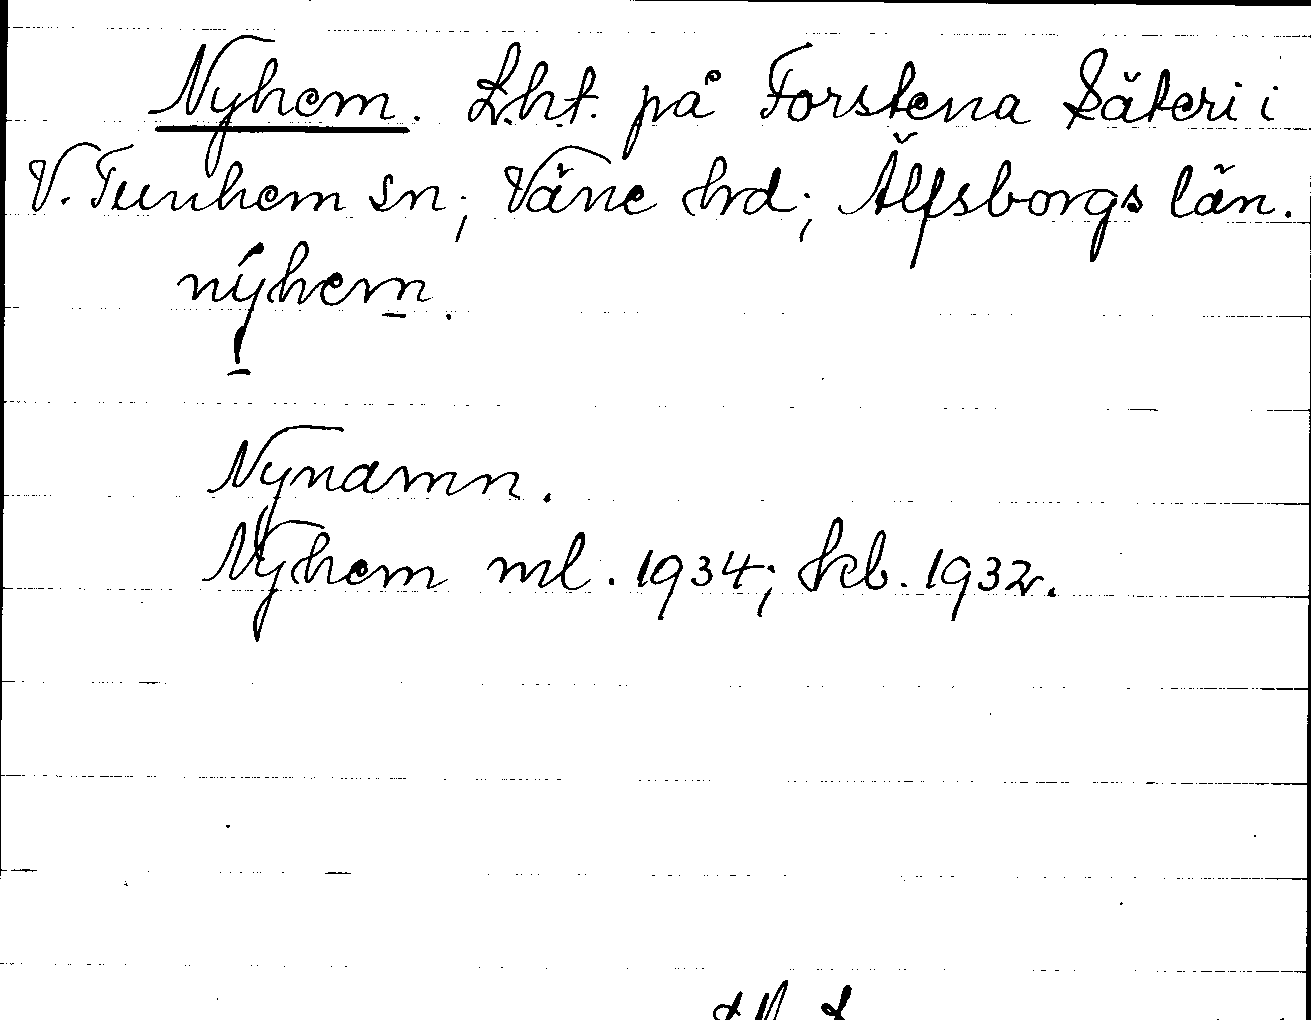 Nyhem. Lht. på Forstena Säteri i
V. Tunhem sn; Väne hrd; Älfsborgs län.
nýhem.
Nynamn.
Nyhem ml. 1934; kb. 1932.